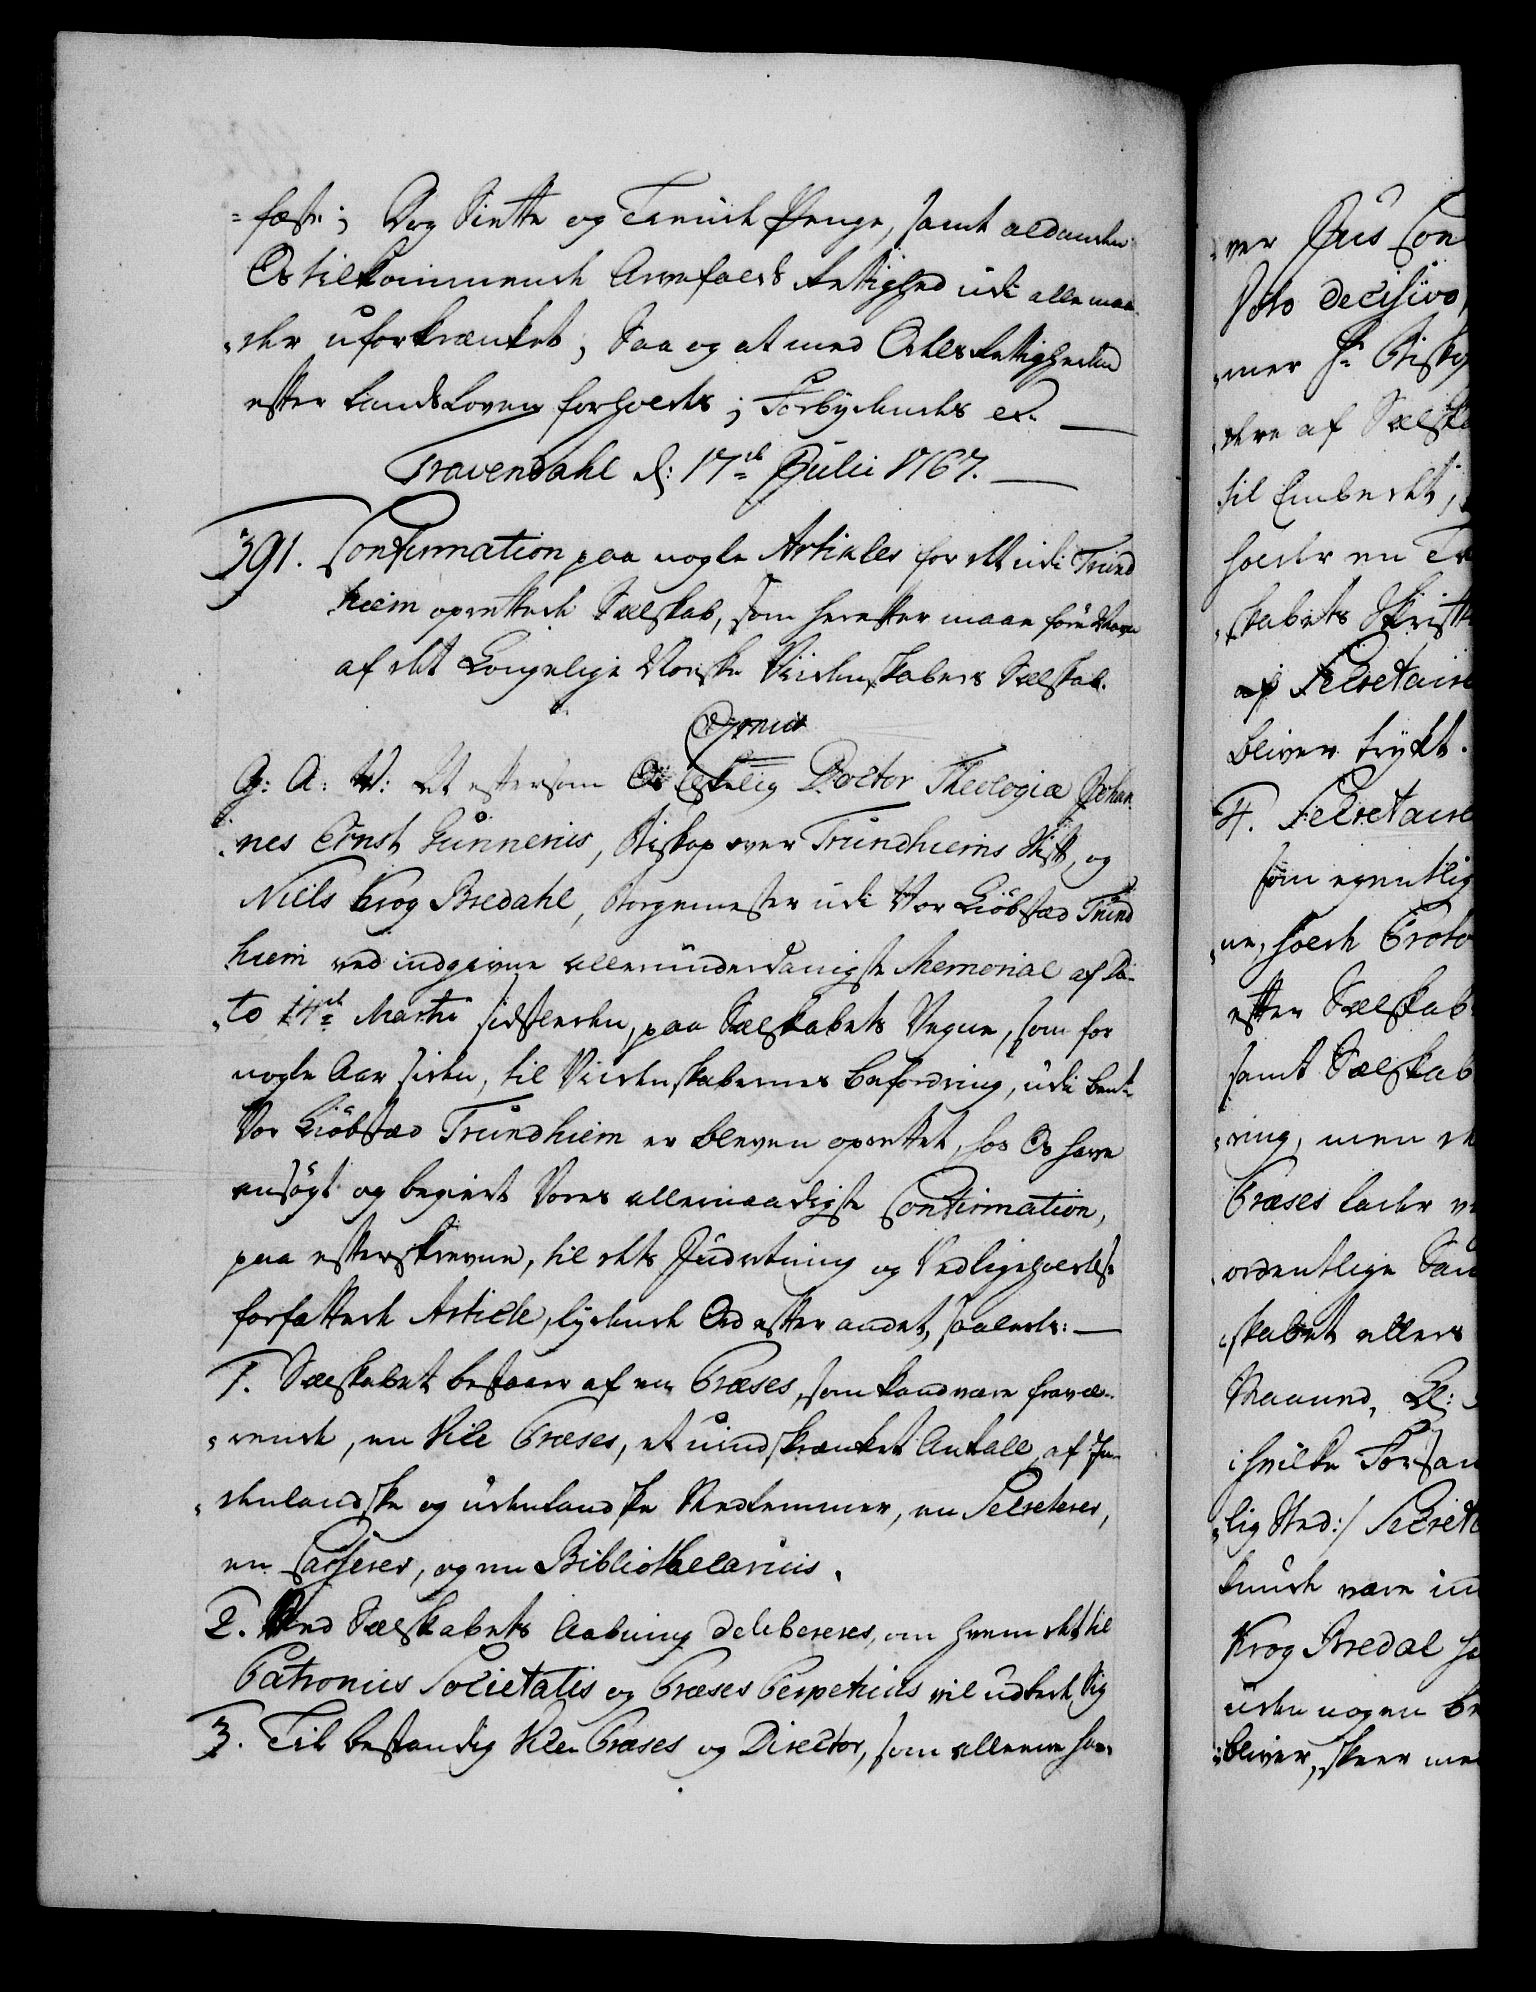 -fæste; Dog Siette og Tiende Penge, samt al anden
Os tilkommende Arvefalds Rettighed udi alle maa-
-der uforkrænket; Saa og at med Odels Rettigheden
efter Lands Loven forholdes; Forbydendes &c.
Travendahl d: 17de Julii 1767.
391. Confirmation paa nogle Articles for det udi Trund
hiem oprettede Sælskab, som herefter maae före Navn
af det Kongelige Norske Videnskabers Sælskab.
G: A: V: At eftersom Os Elskelig Doctor Theologiæ Johan
-nes Ernst Gunnerus, Biskop over Trundhiems Stift, og
Niels Krog Bredahl, Borgemester udi Vor Kiöbstæd Trund
hiem ved indgivne allerunderdanigste Memorial af Da-
-to 14de Martii sidstleden, paa Sælskabets Vegne, som for
nogle Aar siden, til Videnskabernes Befordring, udi bemte
Vor Kiöbstæd Trundhiem er bleven oprettet, hos Os have
ansögt og begiert Vores allernaadigste Confirmation,
paa efterskrevne, til dets Indretning og Vedligeholdelse
forfattede Article, lydende Ord efter andet, saaledes:
1. Sælskabet bestaaer af en Præses, som kand være fravæ-
-rende, en Vice Præses, et uindskrænket Antall af In-
-denlandske og udenlandske Medlemmer, en Secreterer,
en Casserer, og en Bibliothecarius.
2. Ved Sælskabets Aabning delibereres, om hvem det til
Patronus Societatis og Præses Perpetuus vil udbede Sig
3. Til bestandig Vice Præses og Director, som allene ha-
-ver Jus Con
Voto decisivo,
-mer Hr Bisko
-dere af Sælska
til Embedet,
holder en Ta
-skabets Skrift
af Secretaire
bliver trykt.
4. Secretaire
som egentlig
-ne, holde Proto
efter Sælskab
samt Sælskab
-ring, men de
Præses lader
ordentlige Sam
-skabet ellers
Maaned,
i hvilke Forsam
-lig Sted:/ Secrete
kunde være in
Krog Bredal ha
uden nogen be
-bliver, skeer me